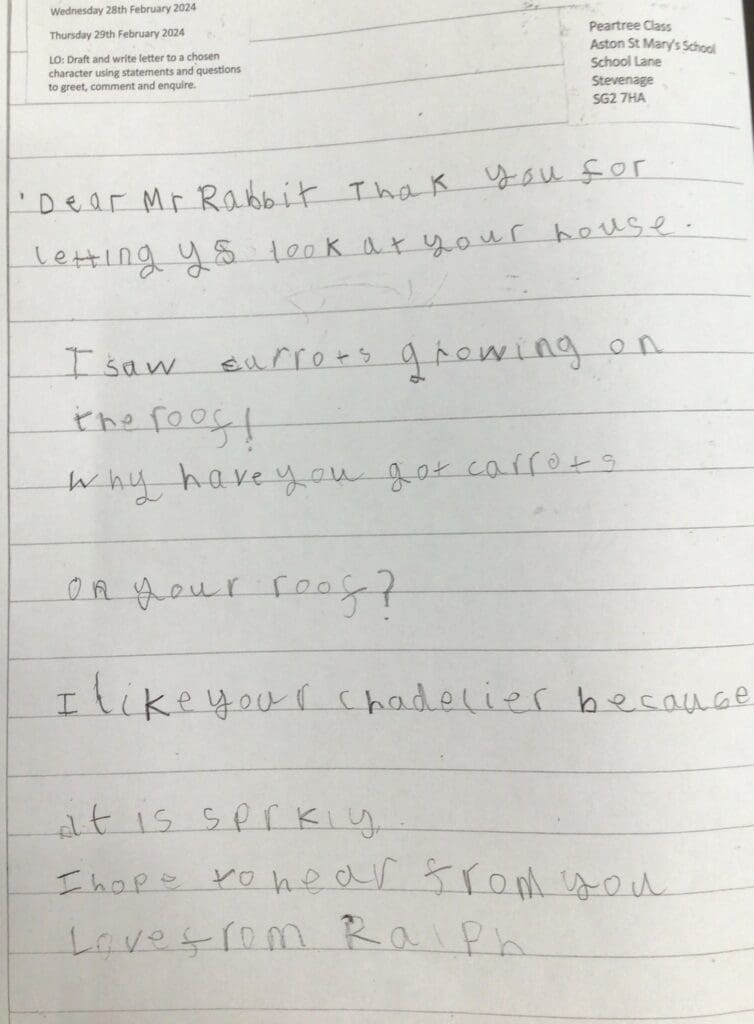 Wednesday 28th February 2024
Thursday 29th February 2024
LO: Draft and write letter to a chosen
character using statements and questions
to greet, comment and enquire.
Peartree Class
Aston St Mary's School
School Lane
Stevenage
SG2 7HA
Dear Mr Rabbit Thak you for
letting ys look at your house.
I saw carrots growing on
the roof!
Why have you got carrots
on your roof?
I like your chadelier because
it is sprkly.
I hope to hear from you
Love from Ralph